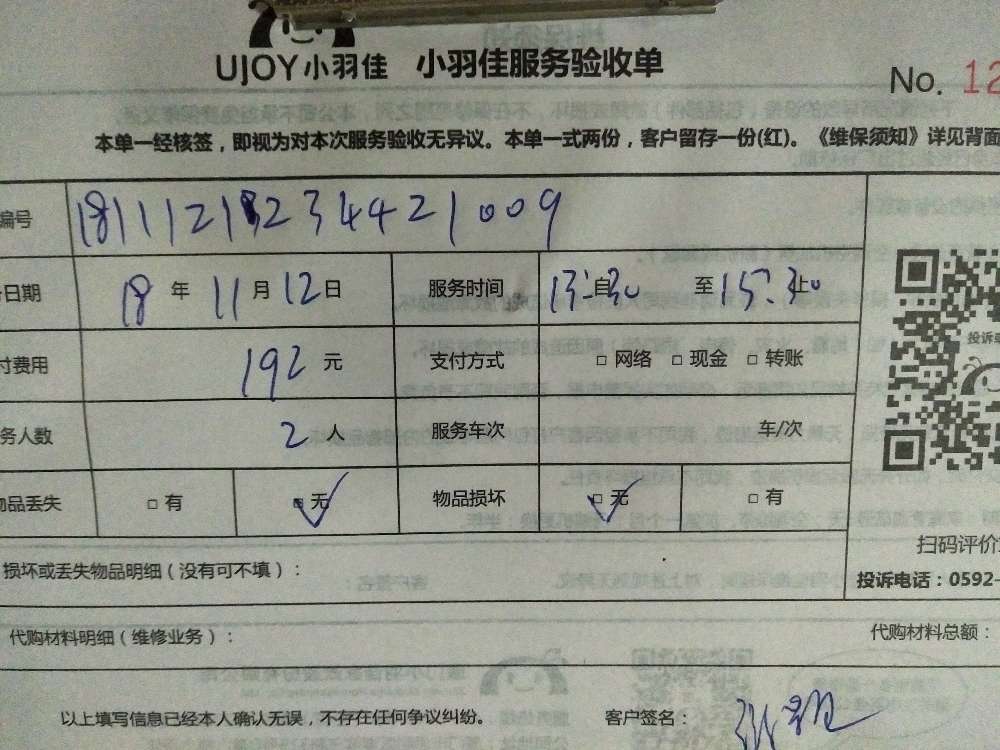 UJOY小羽佳 小羽佳服务验收单
No. 12
本单一经核签，即视为对本次服务验收无异议。本单一式两份，客户留存一份(红)。《维保须知》详见背面
编号
日期 18 年 11 月 12 日 服务时间 13:30 至 15:30
付费用 192 元 支付方式 □ 网络 □ 现金 □ 转账
务人数 2 人 服务车次 车/次
物品丢失 □ 有 □ 无 物品损坏 □ 无 □ 有
投诉
扫码评价
损坏或丢失物品明细（没有可不填）：
投诉电话：0592-
代购材料明细（维修业务）： 代购材料总额：
以上填写信息已经本人确认无误，不存在任何争议纠纷。 客户签名：